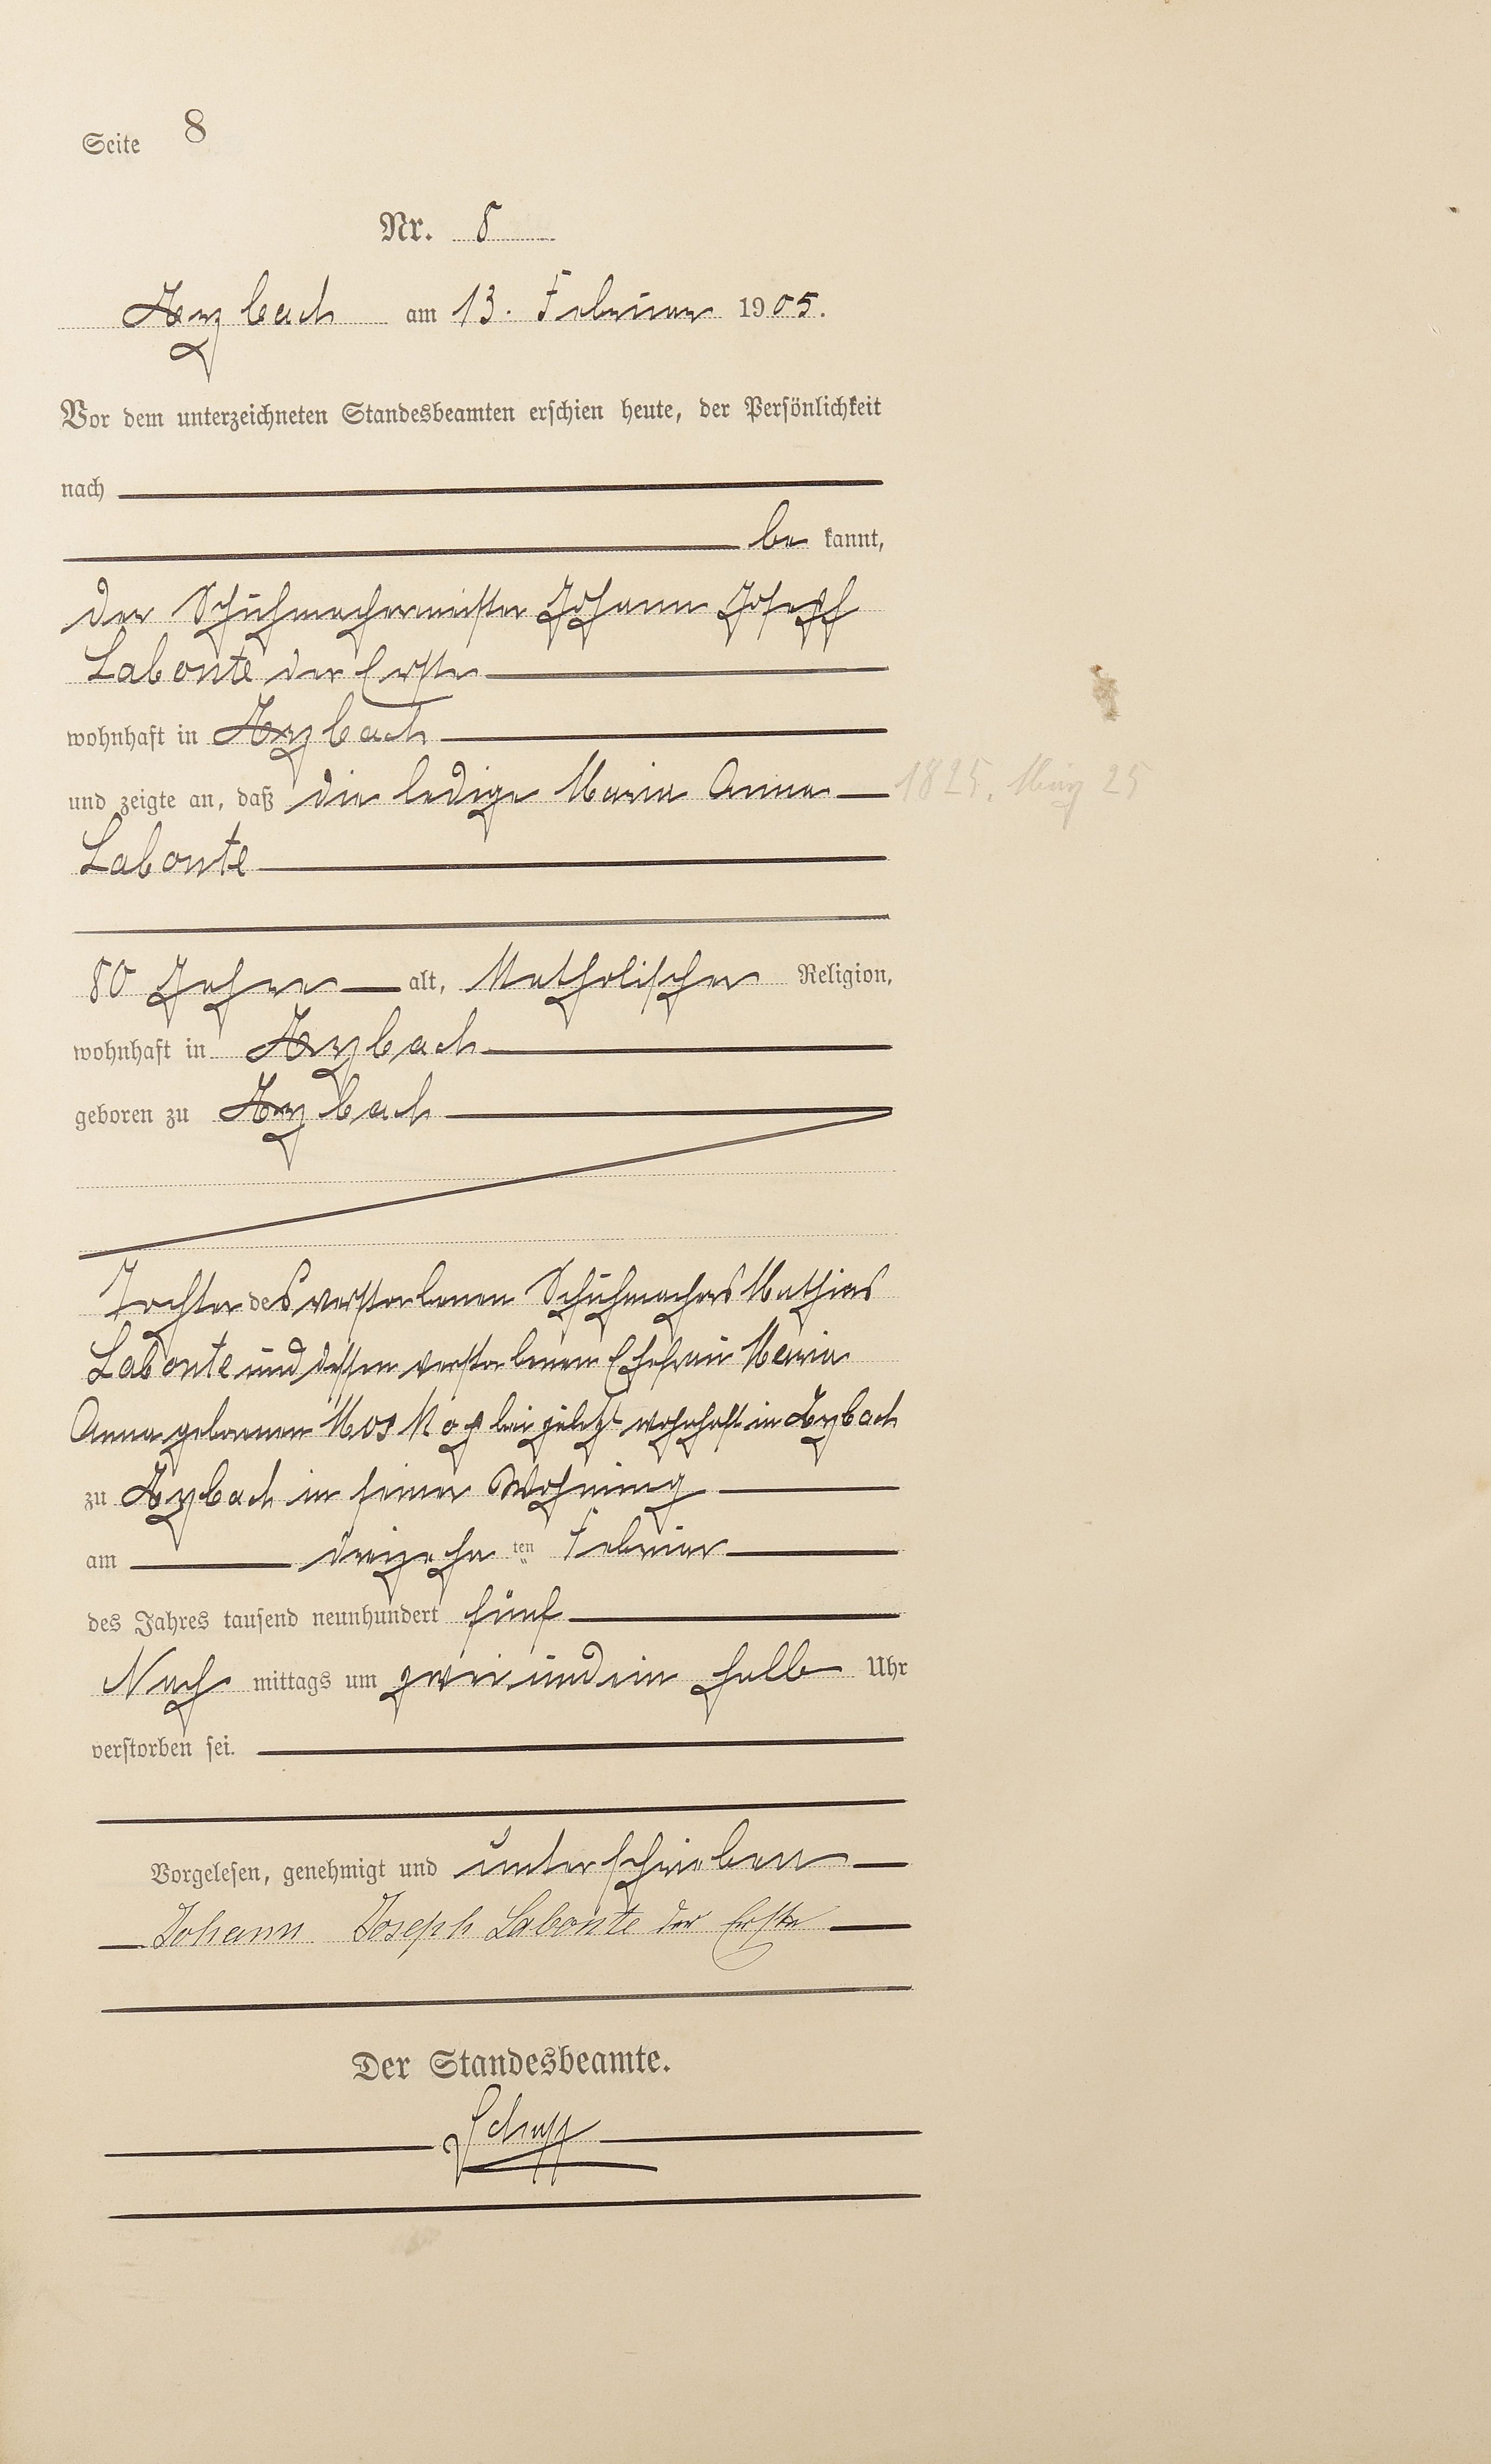 Seite 8
Nr. 8
Arzbach am 13. Februar 1905.
Vor dem unterzeichneten Standesbeamten erschien heute, der Persönlichkeit
nach
be kannt,
der Schuhmachermeister Johann Josepf
Labonte der Erste
wohnhaft in Arzbach
und zeigte an, daß die ledige Maria Anna 1825. März 25
Labonte
80 Jahre alt, Katholischer Religion,
wohnhaft in Arzbach
geboren zu Arzbach
Tochter des verstorbenen Schuhmachers Mathias
Labonte und dessen verstorbenen Ehefrau Maria
Anna geborenen beide zuletzt wohnhaft in Arzbach
zu Arzbach in seiner Wohnung
am dreizehn ten Februar
des Jahres tausend neunhundert fünf
Nach mittags um zwei und ein halb Uhr
verstorben sei.
Vorgelesen, genehmigt und unterschrieben
Johann Joseph Labonte der Erste
Der Standesbeamte.